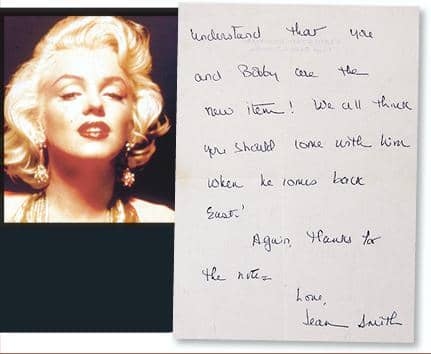 understand that you
and Bobby are the
new item! We all think
you should come with him
when he comes back
East!
Again, thanks for
the note—
Love,
Jean Smith